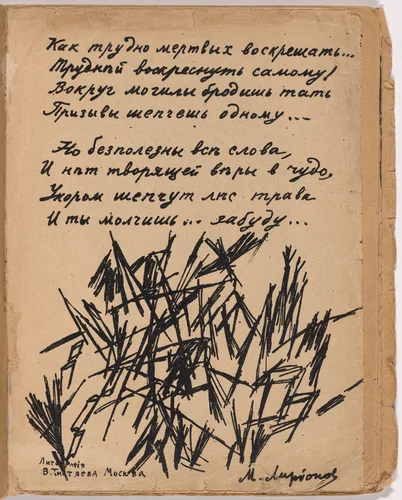 Как трудно мертвых воскрешать...
Труднѣй воскреснуть самому!
Вокруг могилы бродишь тать
Призывы шепчешь одному...
Но безполезны всѣ слова,
И нѣт творящей вѣры в чудо,
Укором шепчут лѣс трава
И ты молчишь... забуду...
Литография
В. Титяева Москва
М. Ларіонов